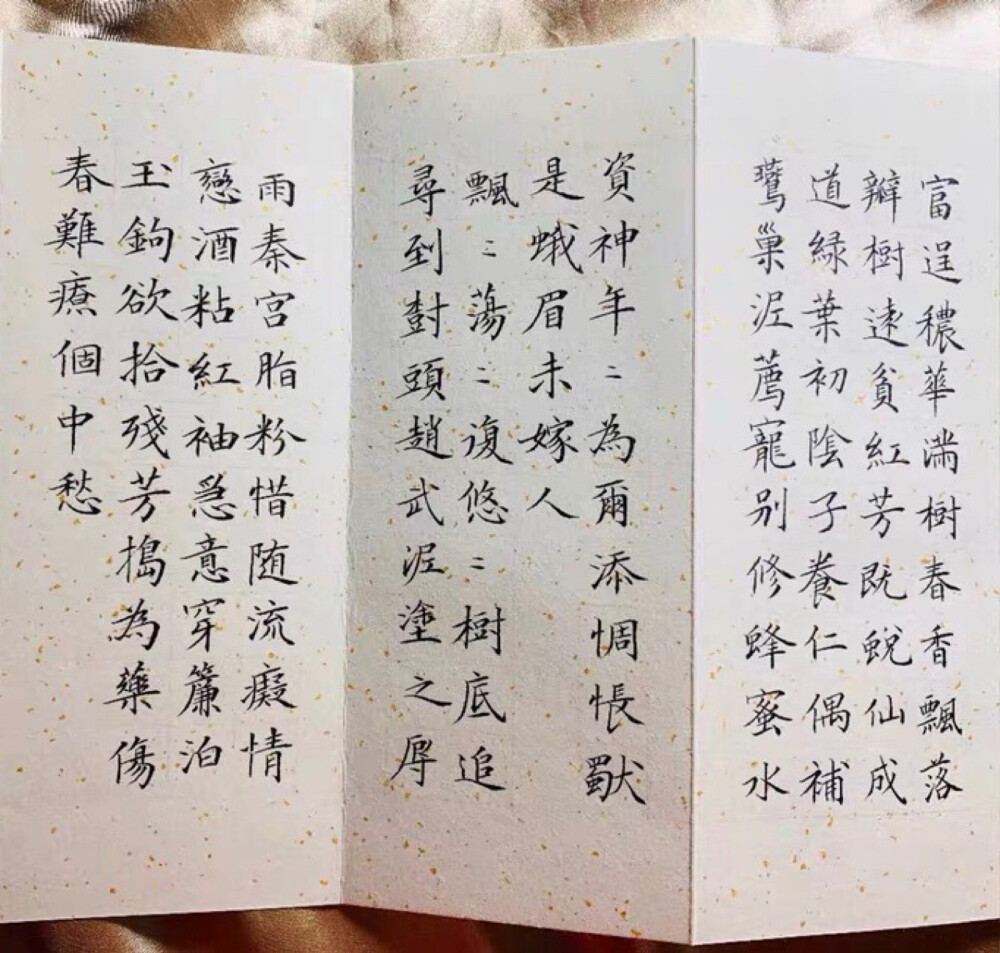 富逞穠華满樹春香飄落
瓣樹遠貧紅芳既蛻仙成
道緑葉初陰子養仁偶補
鶯巢泥薦寵别修蜂蜜水
資神年〻為爾添惆悵獸
是蛾眉未嫁人
飄〻蕩〻復悠〻樹底追
尋到對頭趙武泥塗之厚
雨秦宫脂粉惜随流癡情
戀酒粘紅袖急意穿簾泊
玉鉤欲拾殘芳搗為藥傷
春難療個中愁